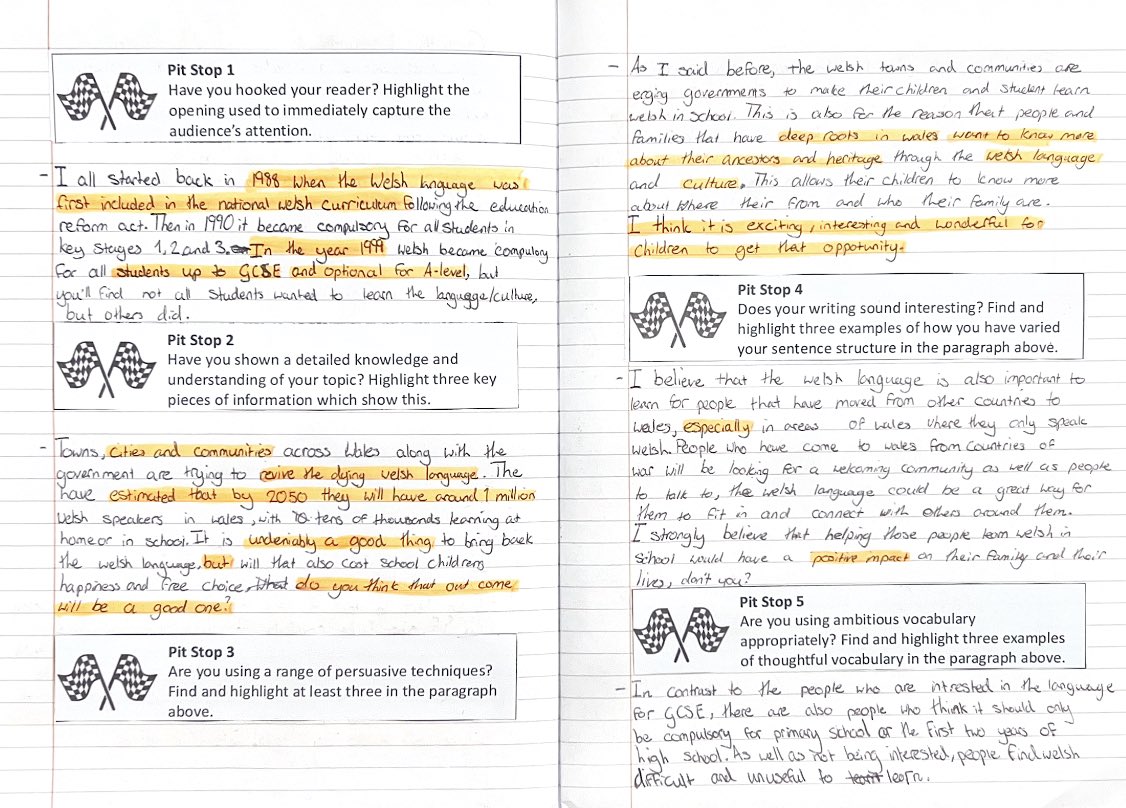 Pit Stop 1
Have you hooked your reader? Highlight the
opening used to immediately capture the
audience's attention.
- I all started back in 1988 when the Welsh lnguage was
first included in the national welsh curriculum following the education
reform act. Then in 1990 it became compulsory for all students in
key stages 1, 2 and 3. In the year 1999 welsh became compulory
for all students up to GCSE and optional for A-level, but
you'll find not all students wanted to learn the langugge/culture,
but others did.
Pit Stop 2
Have you shown a detailed knowledge and
understanding of your topic? Highlight three key
pieces of information which show this.
- Towns, cities and communities across Wales along with the
government are trying to revive the dying welsh language. The
have estimated that by 2050 they will have around 1 million
welsh speakers in wales, with tens of thousands learning at
home or in school. It is undeniably a good thing to bring back
the welsh language, but will that also cost school childrens
happiness and free choice, What do you think that out come
will be a good one?
Pit Stop 3
Are you using a range of persuasive techniques?
Find and highlight at least three in the paragraph
above.
- As I said before, the welsh towns and communities are
erging governments to make their children and student learn
welsh in school. This is also for the reason that people and
families that have deep roots in wales want to know more
about their ancestors and heritage through the welsh language
and culture. This allows their children to know more
about where their from and who their family are.
I think it is exciting, interesting and wonderful for
children to get that oppotunity.
Pit Stop 4
Does your writing sound interesting? Find and
highlight three examples of how you have varied
your sentence structure in the paragraph above.
- I believe that the welsh language is also important to
learn for people that have moved from other countries to
wales, especially in areas of wales where they only speak
welsh. People who have come to wales from countries of
war will be looking for a welcoming community as well as people
to talk to, the welsh language could be a great way for
them to fit in and connect with others around them.
I strongly believe that helping those people learn welsh in
school would have a positive impact on their family and their
lives, don't you?
Pit Stop 5
Are you using ambitious vocabulary
appropriately? Find and highlight three examples
of thoughtful vocabulary in the paragraph above.
- In contrast to the people who are intrested in the language
for GCSE, there are also people who think it should only
be compulsory for primary school or the first two years of
high school. As well as not being interested, people find welsh
difficult and unuseful to learn.